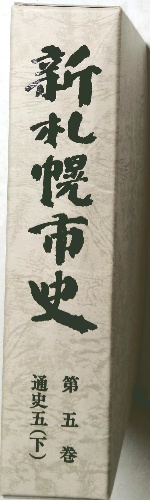 新札幌市史
第五巻
通史五(下)